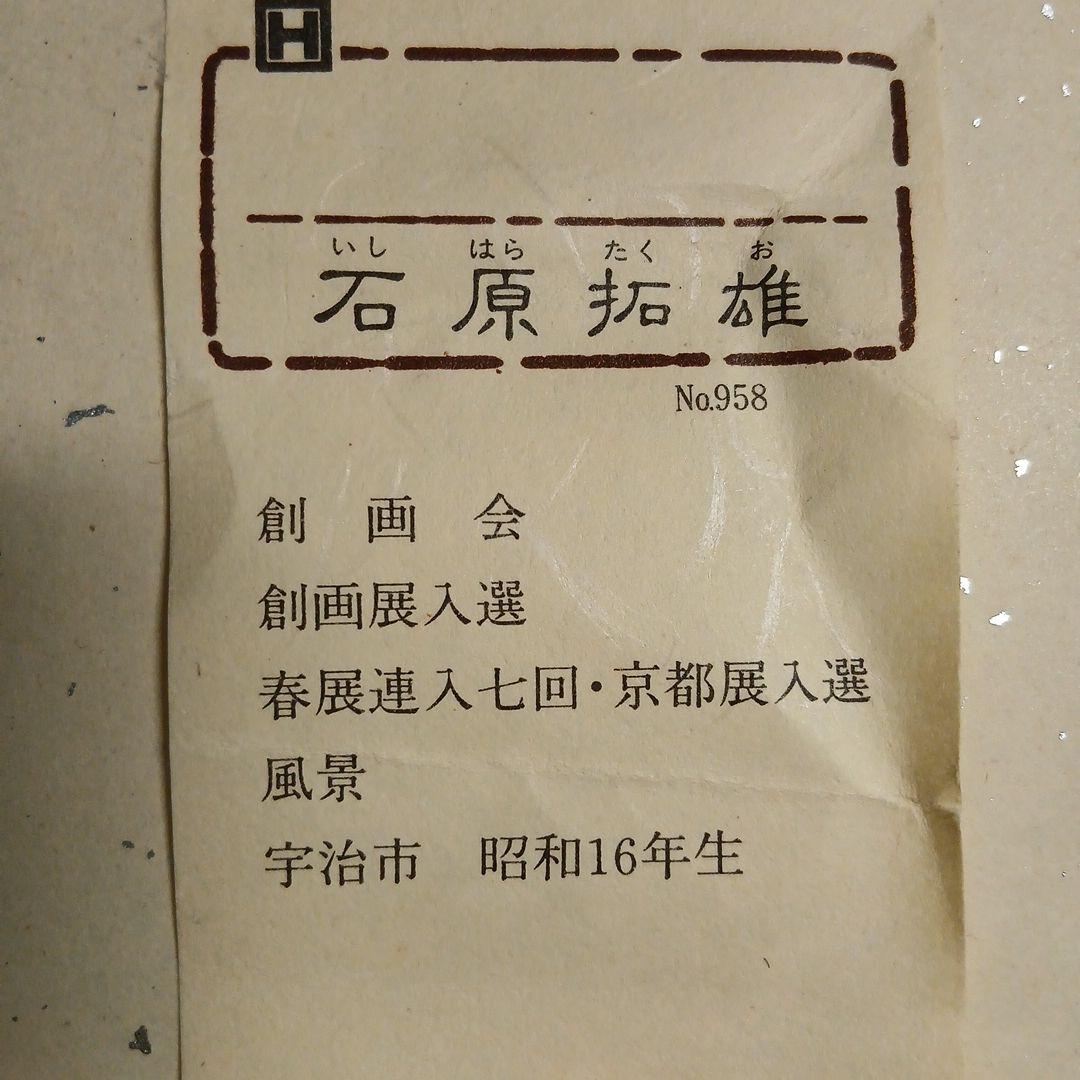 H
いし はら たく お
石原拓雄
No.958
創画会
創画展入選
春展連入七回・京都展入選
風景
宇治市 昭和16年生